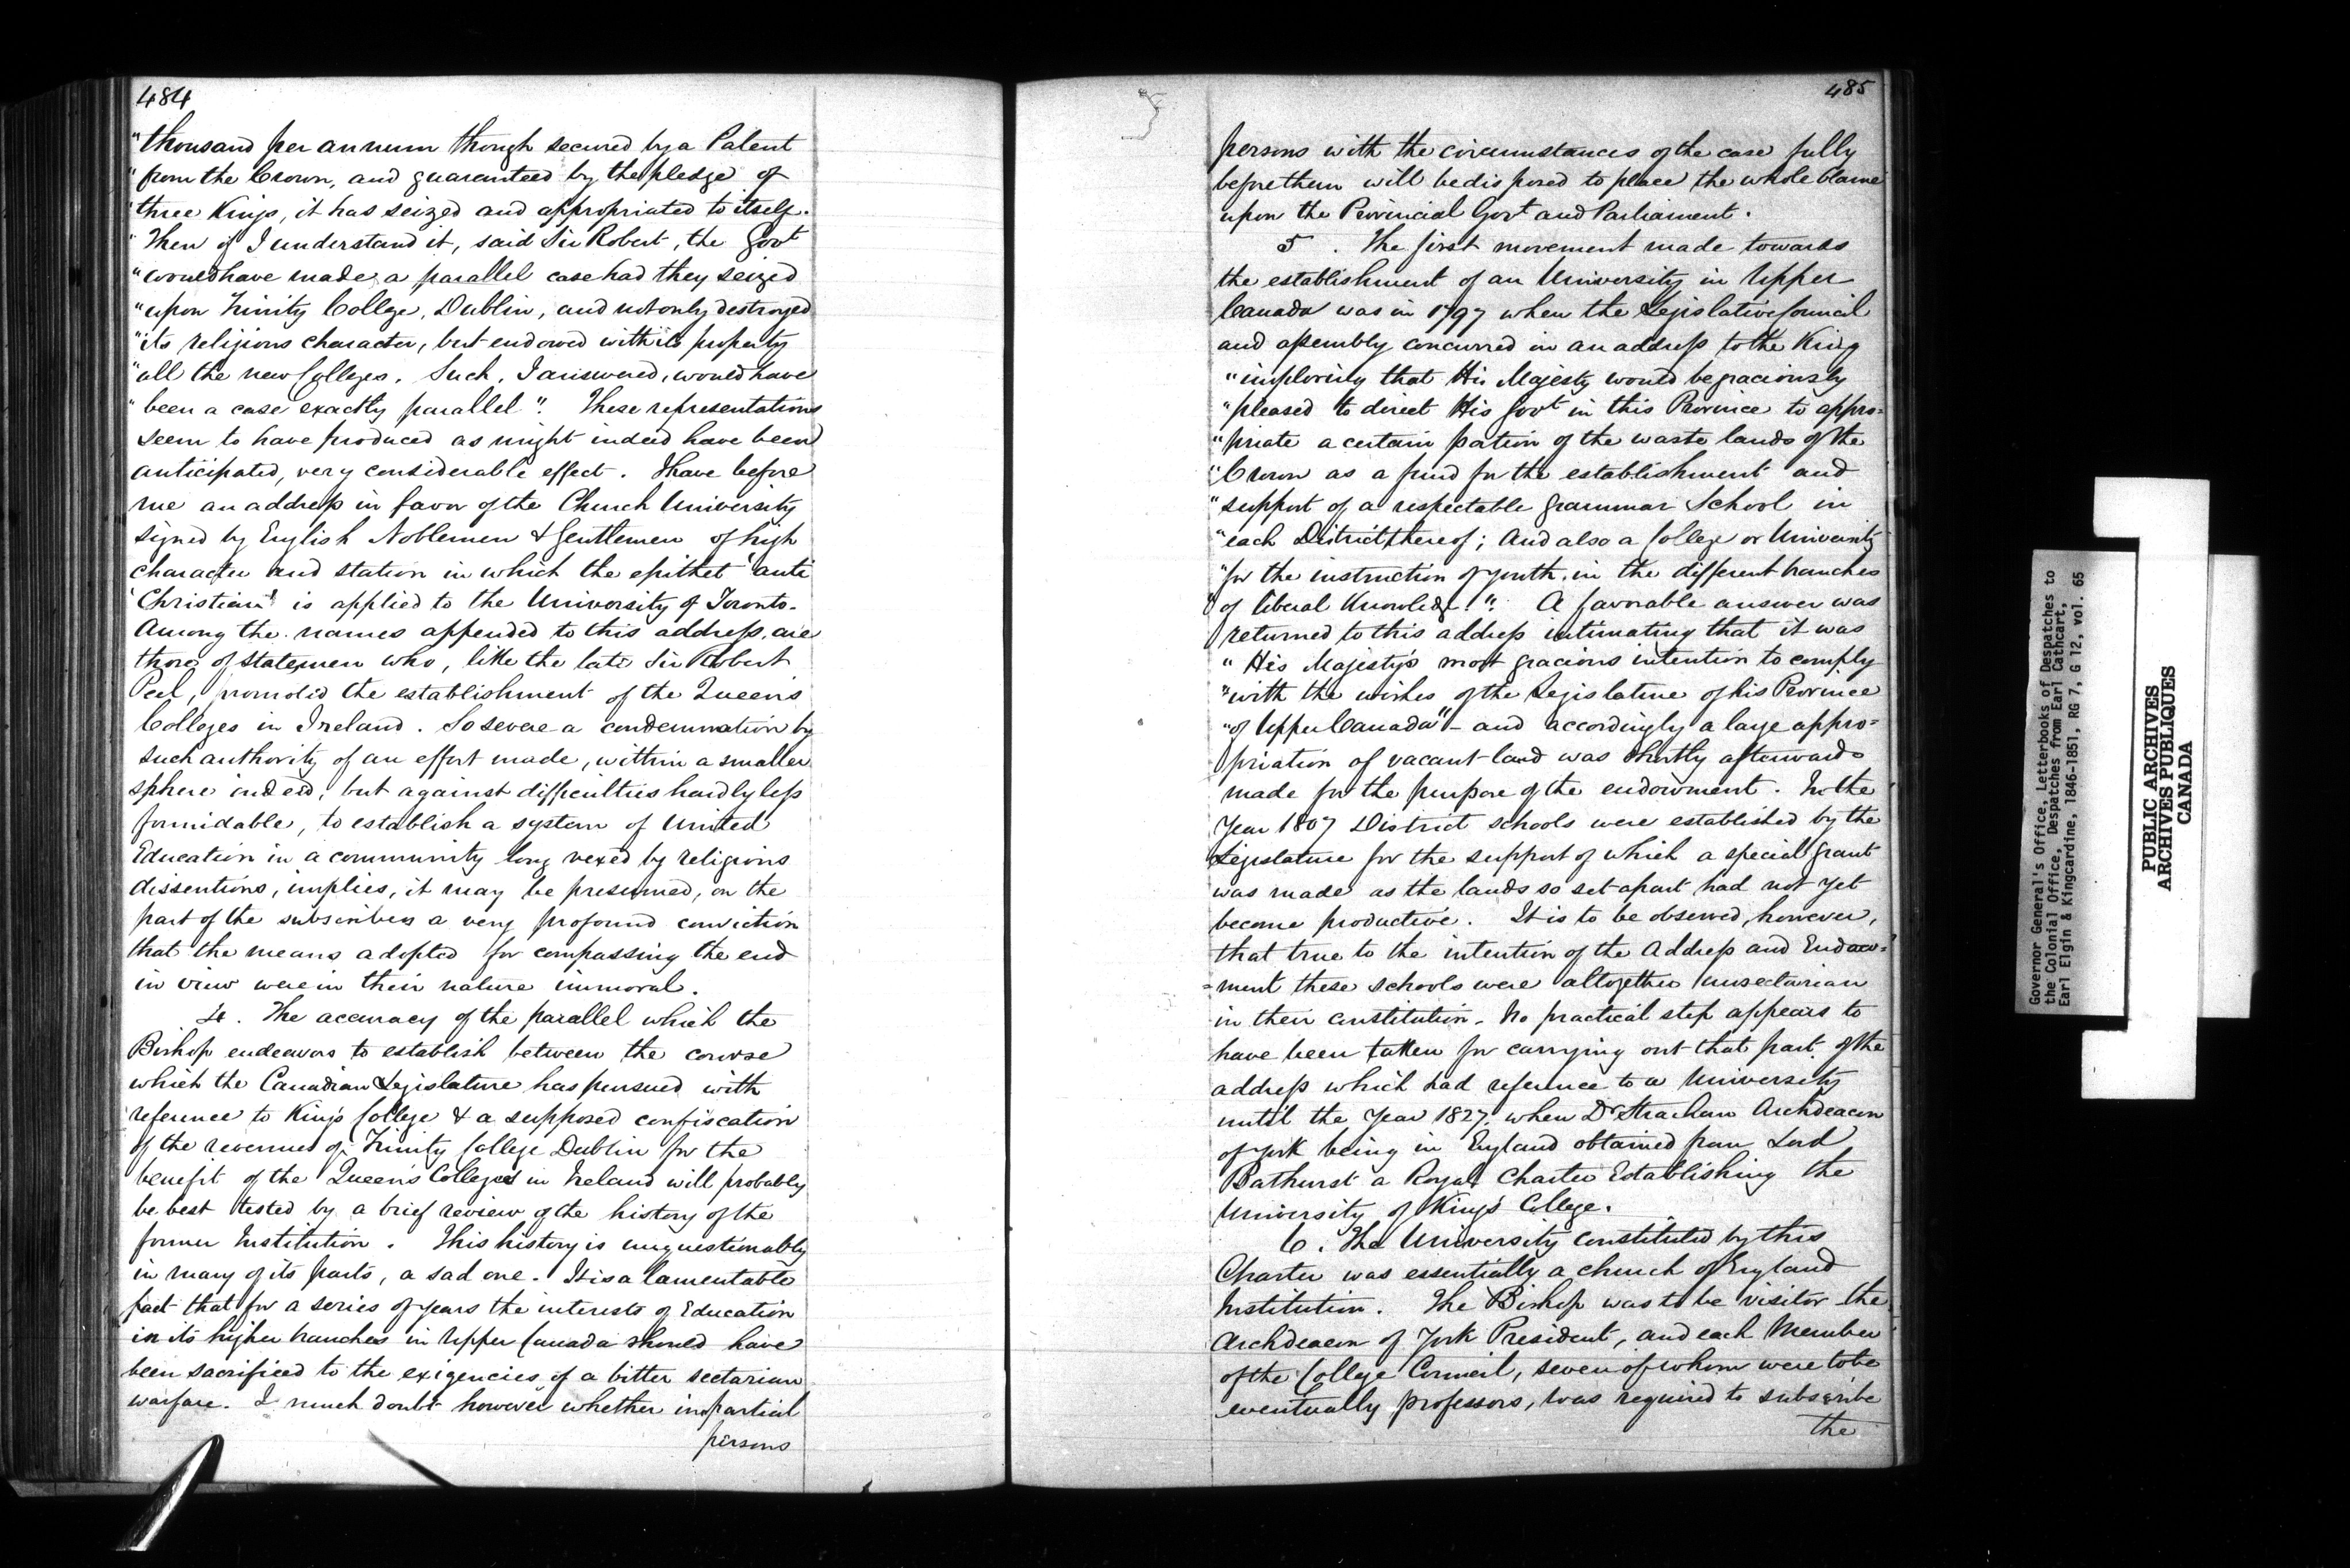 484
"thousand per annum though secured by a Patent
"from the Crown, and guaranteed by the pledge of
"three Kings, it has seized and appropriated to itself.
"Then if I understand it, said Sir Robert, the Govt
"would have made a parallel case had they seized
"upon Trinity College, Dublin, and not only destroyed
"its religious character, but endowed with its property
"all the new Colleges. Such, I answered, would have
"been a case exactly parallel". These representations
seem to have produced as might indeed have been
anticipated, very considerable effect. I have before
me an address in favor of the Church University
signed by English Noblemen & Gentlemen of high
character and station in which the epithet 'anti
'Christian' is applied to the University of Toronto.
Among the names appended to this address, are
those of Statesmen who, like the late Sir Robert
Peel, promoted the establishment of the Queen's
Colleges in Ireland. So severe a condemnation by
such authority of an effort made, within a smaller
sphere indeed, but against difficulties hardly less
formidable, to establish a system of United
Education in a community long vexed by religious
dissentions, implies, it may be presumed, on the
part of the subscribers a very profound conviction
that the means adopted for compassing the end
in view were in their nature immoral.
4. The accuracy of the parallel which the
Bishop endeavors to establish between the course
which the Canadian Legislature has pursued with
reference to King's College & a supposed confiscation
of the revenues of Trinity College Dublin for the
benefit of the Queen's Colleges in Ireland will probably
be best tested by a brief review of the history of the
former Institution. This history is unquestionably
in many of its parts, a sad one. It is a lamentable
fact that for a series of years the interests of Education
in its higher branches in Upper Canada should have
been sacrificed to the exigencies of a bitter sectarian
warfare. I much doubt however whether impartial
persons
485
persons with the circumstances of the case fully
before them will be disposed to place the whole blame
upon the Provincial Govt and Parliament.
5. The first movement made towards
the establishment of an University in Upper
Canada was in 1797 when the Legislative Council
and assembly concurred in an address to the King
"imploring that His Majesty would be graciously
"pleased to direct His Govt in this Province to appro=
"priate a certain portion of the waste lands of the
"Crown as a fund for the establishment and
"support of a respectable grammar School in
"each District thereof; And also a College or University
"for the instruction of youth in the different branches
"of liberal Knowledge". A favorable answer was
returned to this address intimating that it was
"His Majesty's most gracious intention to comply
"with the wishes of the Legislature of his Province
"of Upper Canada" - and accordingly a large appro=
priation of vacant land was shortly afterwards
made for the purpose of the endowment. In the
Year 1807 District schools were established by the
Legislature for the support of which a special grant
was made as the lands so set apart had not yet
become productive. It is to be observed, however,
that true to the intention of the Address and Endow=
=ment these schools were altogether unsectarian
in their constitution. No practical step appears to
have been taken for carrying out that part of the
address which had reference to a University
until the Year 1827, when Dr Strachan Archdeacon
of York being in England obtained from Lord
Bathurst a Royal Charter Establishing the
University of King's College.
6. The University constituted by this
Charter was essentially a church of England
Institution. The Bishop was to be visitor the
Archdeacon of York President, and each Member
of the College Council, seven of whom were to be
eventually professors, was required to subscribe
the
Governor General's Office, Letterbooks of Despatches to
the Colonial Office, Despatches from Earl Cathcart,
Earl Elgin & Kingcardine, 1846-1851, RG 7, G 12, vol. 65
PUBLIC ARCHIVES
ARCHIVES PUBLIQUES
CANADA